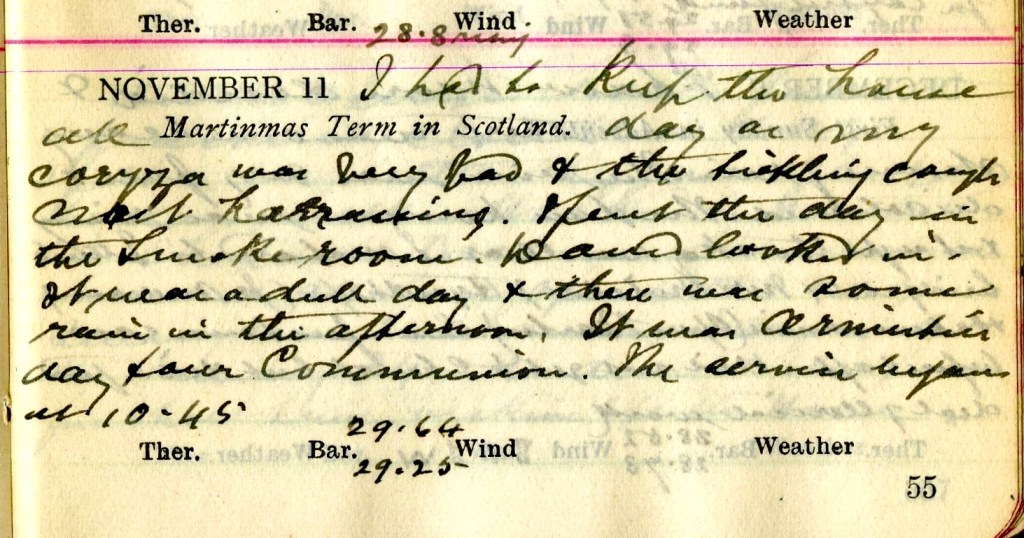 Ther. Bar. 28.8 Wind Weather
NOVEMBER 11 I had to keep the house
all Martinmas Term in Scotland. day as my
coryza was very bad & the tickling cough
most harrassing. Spent the day in
the Smoke room. looked in.
It was a dull day & there was some
rain in the afternoon. It was Armistice
day & our Communion. The service began
at 10-45
Ther. Bar. 29.64 Wind Weather
29.25
55